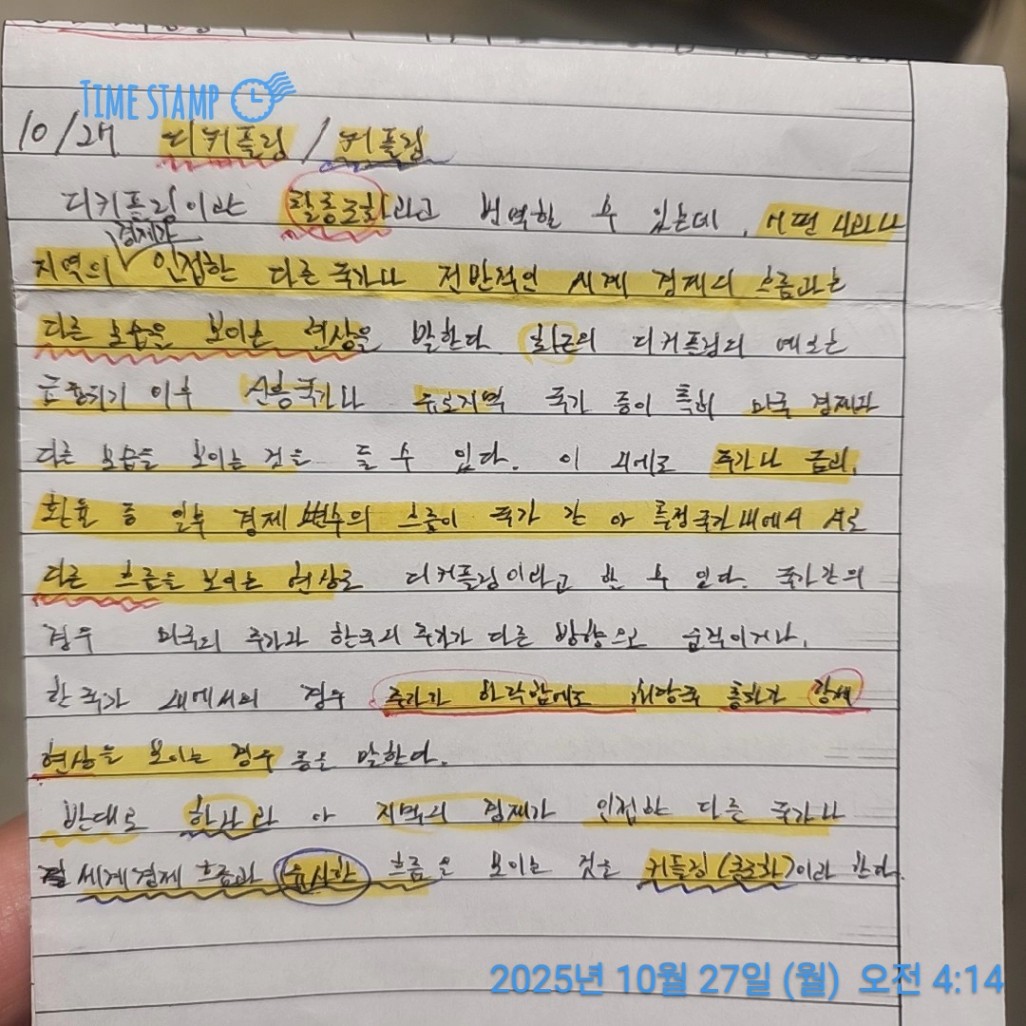 TIME STAMP
10/27 디커플링 / 커플링
디커플링이란 탈동조화라고 번역할 수 있는데, 어떤 나라나
경제가
지역의 인접한 다른 국가나 전반적인 세계 경제의 흐름과는
다른 모습을 보이는 현상을 말한다. 최근의 디커플링의 예로는
금융위기 이후 신흥국가나 유로지역 국가 등이 특히 미국 경제와
다른 모습을 보이는 것을 들 수 있다. 이 외에로 주가나 금리,
환율 등 일부 경제 변수의 흐름이 국가 간 아 특정국가 내에서 서로
다른 흐름을 보이는 현상로 디커플링이라고 할 수 있다. 국가간의
경우 미국의 주가와 한국의 주가가 다른 방향으로 움직이거나,
한 국가 내에서의 경우 주가가 하락함에도 해당국 통화가 강세
현상을 보이는 경우 등을 말한다.
반대로 한 나라 아 지역의 경제가 인접한 다른 국가나
세계경제 흐름과 유사한 흐름을 보이는 것을 커플링(동조화)이라 한다.
2025년 10월 27일 (월) 오전 4:14